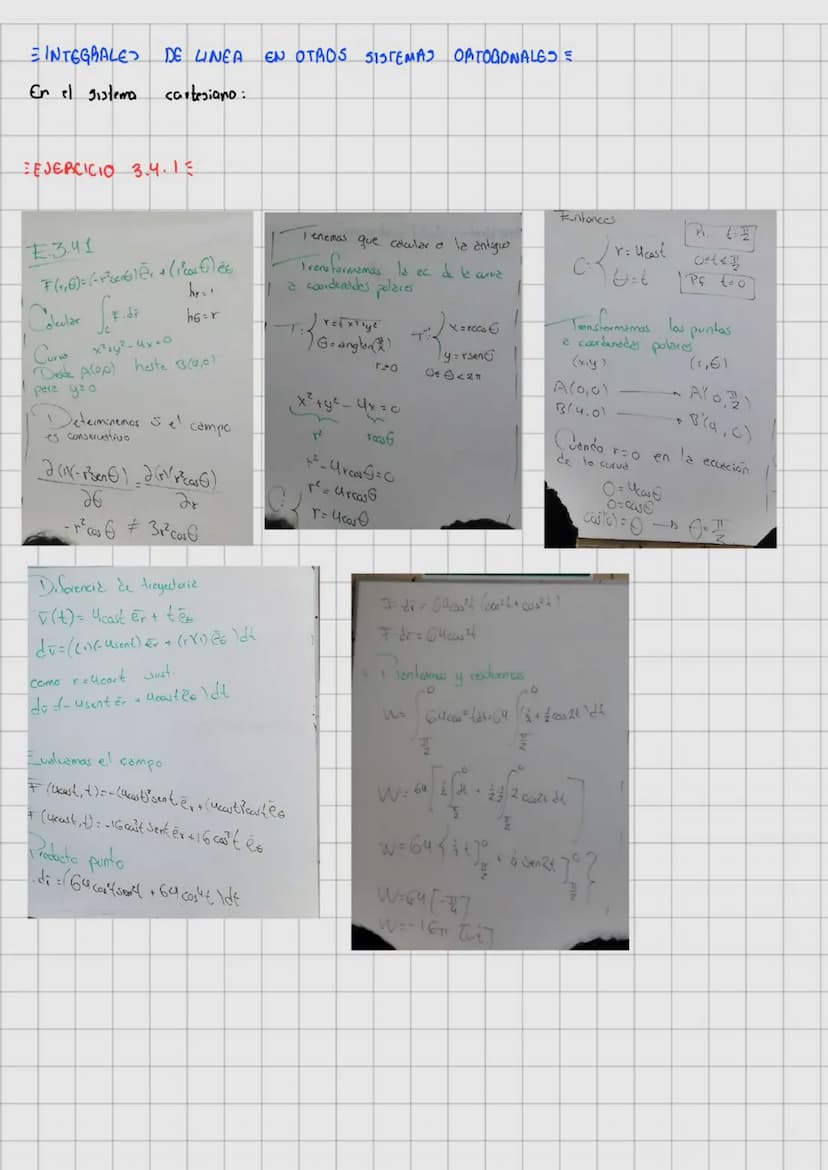 =INTEGRALES DE LINEA EN OTROS SISTEMAS ORTOGONALES=
En el sistema cartesiano:
=EJERCICIO 3.4.1=
E.3.4.1
F(r,θ)=(-r²senθ)ēr+(r²cosθ)ēθ
hr=1
Calcular ∫c F·dr̄
hθ=r
Curva x²+y²-4x=0
Desde A(0,0) hasta B(4,0)
para y≥0
Determinemos si el campo
es conservativo
∂(1)(-r²senθ)/∂θ = ∂(r)(r²cosθ)/∂r
-r²cosθ ≠ 3r²cosθ
Tenemos que calcular a la antigua
Transformamos la ec. de la curva
a coordenadas polares
T:{ r=√x²+y²
θ=angtan(y/x)
T':{ x=rcosθ
y=rsenθ
r≥0
0≤θ<2π
x²+y²-4x=0
r² rcosθ
r²-4rcosθ=0
r²=4rcosθ
C:{ r=4cosθ
Entonces
C:{ r=4cost
θ=t
Pi t=π/2
0≤t≤π/2
Pf t=0
Transformamos los puntos
a coordenadas polares
(x,y) (r,θ)
A(0,0) → A'(0,π/2)
B(4,0) → B'(4,0)
Cuando r=0 en la ecuación
de la curva
0=4cosθ
0=cosθ
cos⁻¹(0)=θ → θ=π/2
Diferencia de trayectoria
r̄(t)=4cost ēr + t ēθ
dr̄=((1)(-4sent)ēr+(r)(1)ēθ)dt
como r=4cost sust.
dr̄=(-4sent ēr+4cost ēθ)dt
Evaluamos el campo
F̄(4cost,t)=-(4cost)²sent ēr+(4cost)²cost ēθ
F̄(4cost,t)=-16cos²t sent ēr+16cos³t ēθ
Producto punto
·dr̄=(64cos²t sen²t+64cos⁴t)dt
F̄·dr̄=64cos²t(sen²t+cos²t)
F̄·dr̄=64cos²t
Planteamos y resolvemos
W=∫π/2^0 64cos²t dt=64∫π/2^0(½+½cos2t)dt
W=64[½∫π/2^0 dt+½·½∫π/2^0 2cos2t dt]
W=64{½t]π/2^0+¼sen2t]π/2^0}
W=64[-π/4]
W=-16π [ut]